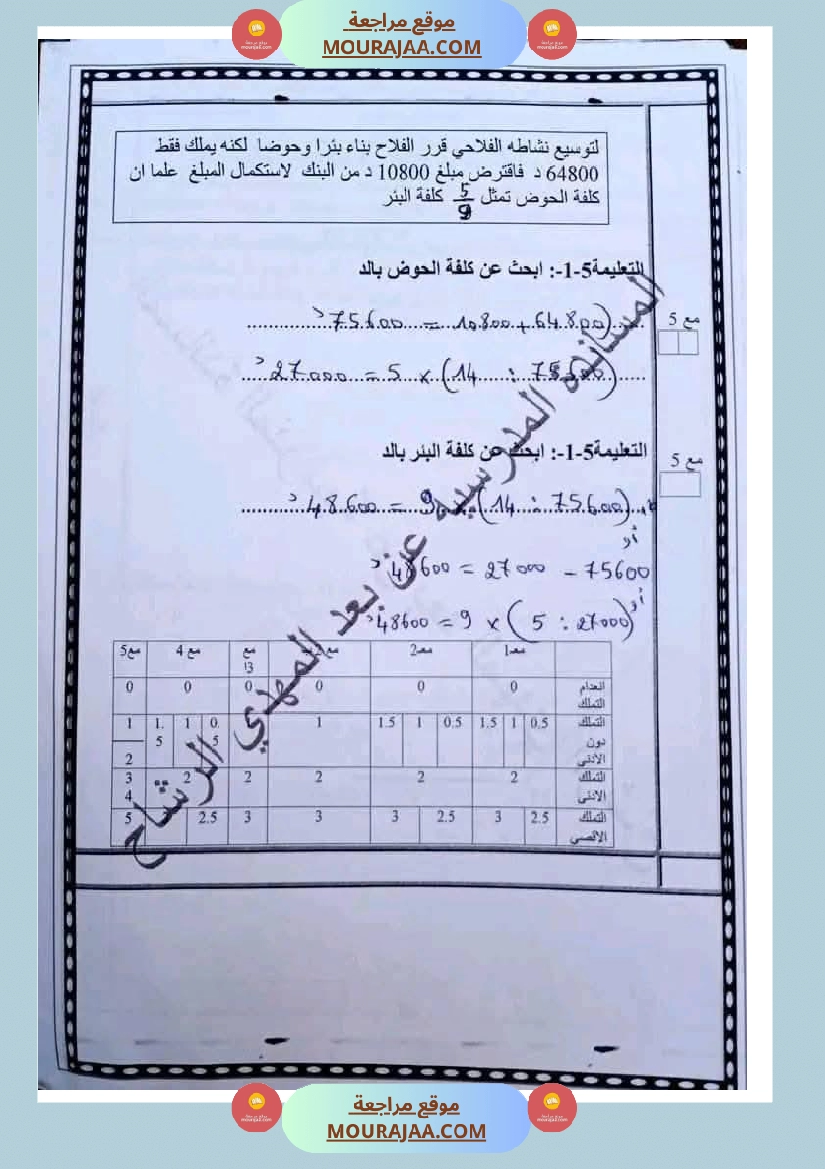 موقع مراجعة
MOURAJAA.COM
لتوسيع نشاطه الفلاحي قرر الفلاح بناء بئرا وحوضا لكنه يملك فقط
64800 د فاقترض مبلغ 10800 د من البنك لاستكمال المبلغ علما ان
كلفة الحوض تمثل 5/9 كلفة البئر
التعليمة5-1-: ابحث عن كلفة الحوض بالد
مع 5
(64.800 + 10.800 = 75.600 د
(75600 : 14) × 5 = 27000 د
التعليمة5-1-: ابحث عن كلفة البئر بالد
مع 5
(75600 : 14) × 9 = 48.600 د
أو
75600 – 27000 = 48600 د
أو
(27000 : 5) × 9 = 48600 د
المساندة المدرسية عن بعد المهدي الرشاح
مع1 مع2 مع 4 مع5
انعدام التملك 0 0 0 0 0 0
التملك دون الأدنى 0.5 1 1.5 0.5 1 1.5 1 0.5 1 1.5 1 2
التملك الادنى 2 2 2 2 2 3 4
التملك الاقصى 2.5 3 2.5 3 3 3 2.5 5
موقع مراجعة
MOURAJAA.COM